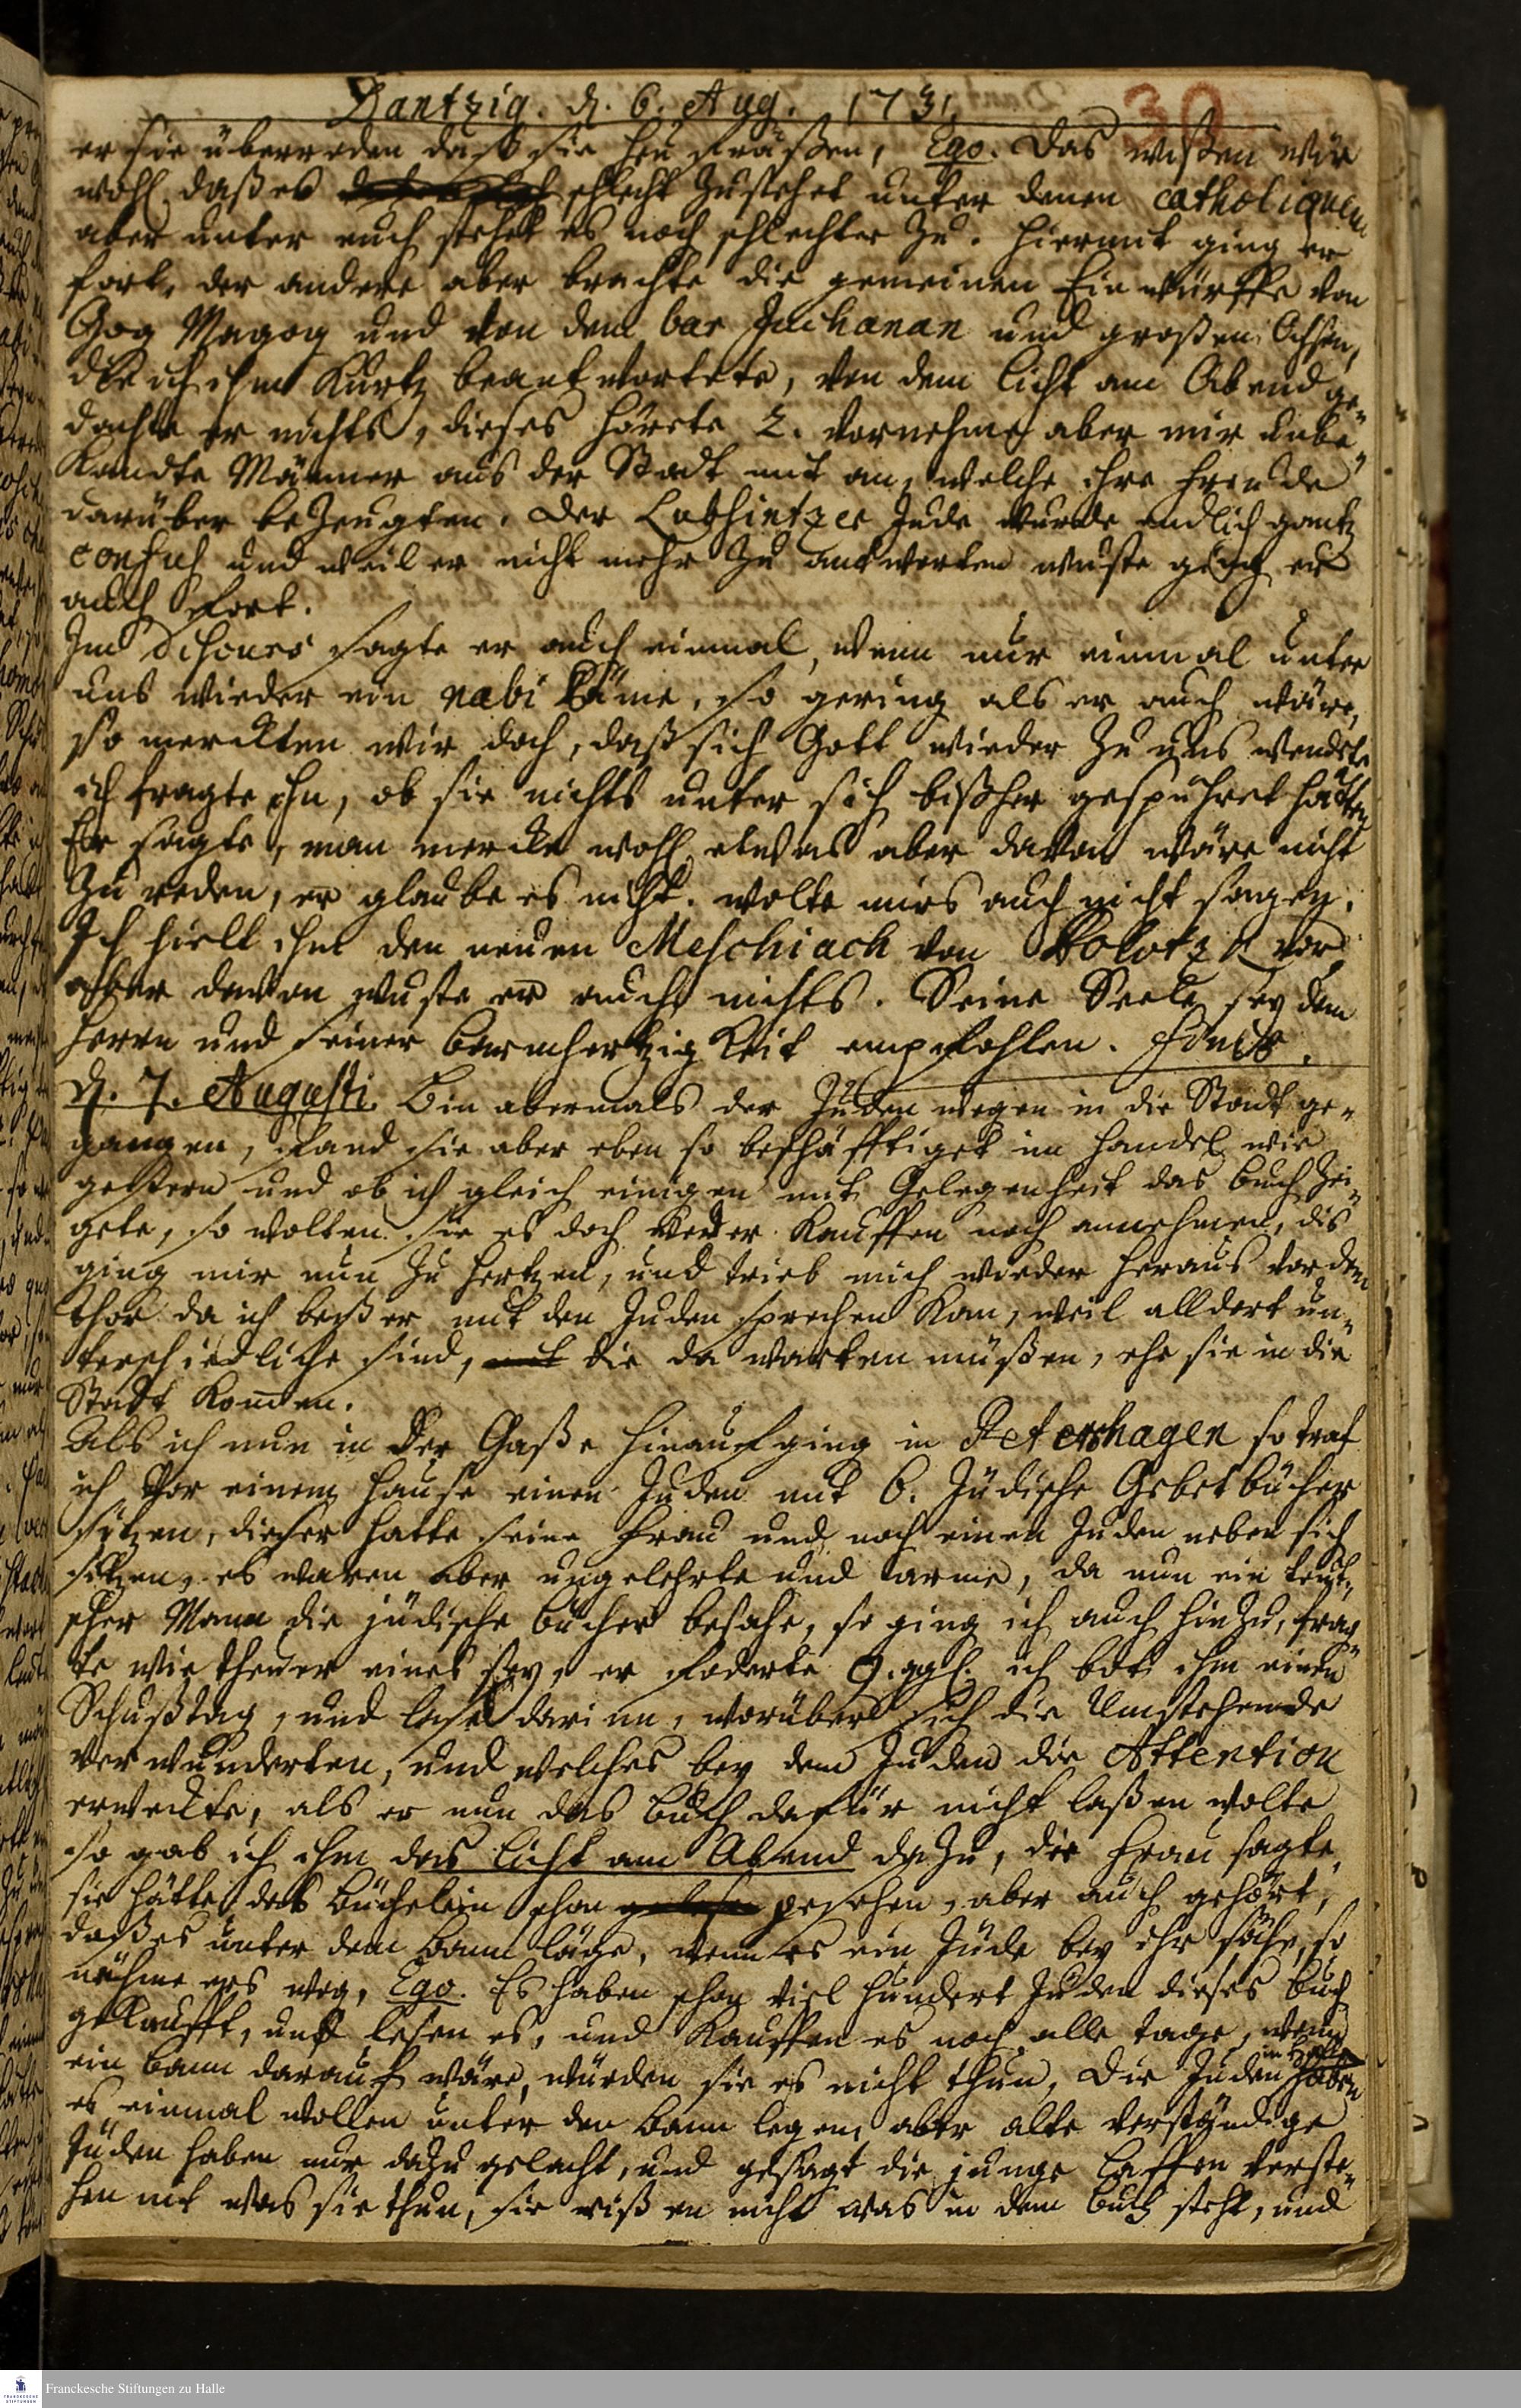 Dantzig. d. 6. Aug. 1731.
30
er sie überreden daß sie Heu fräßen, Ego. Das wißen wir
wohl daß es schlecht zustehet unter denen catholiquen
aber unter euch stehet es noch schlechter zu. hiermit ging er
fort, der andere aber brachte die gemeinen Einwürffe von
Gog Magog und von dem bar Juchanan und großen Ochsen,
die ich ihm kurtz beantwortete, von dem licht am Abend ge„
dachte er nichts, dieses hörete 2. vornehme aber mir unbe„
kandte Männer aus der Stadt mit an, welche ihre freude
darüber bezeugten. Der Jude wurde endlich gantz
confus und weil er nicht mehr zu antworten wuste ging er
auch fort.
Im discurs sagte er auch einmal, wenn nur einmal unter
uns wieder ein nabi käme, so gering als er auch wäre,
so merckten wir doch, daß sich Gott wieder zu uns wendete
ich fragte ihn, ob sie nichts unter sich bißher gespühret hätten
Er sagte, man mercke wohl etwas aber davon wäre nicht
zu reden, er glaube es nicht. wolte mirs auch nicht sagen.
Ich hielt ihm den neuen Meschiach von vor,
aber davon wuste er auch nichts. Seine Seele sey dem
Herrn und seiner barmhertzigkeit empfohlen. Finis.
d. 7. Augusti. Bin abermals der Juden wegen in die Stadt ge„
gangen, fand sie aber eben so beschäfftiget im handel wie
gestern und ob ich gleich einigen mit Gelegenheit das buch zei„
gete, so wolten sie es doch weder kauffen noch annehmen, dis
ging mir nun zu hertzen, und trieb mich wieder heraus vor dem
thor da ich beßer mit den Juden sprechen kan, weil alldort un„
terschiedliche sind, die da warten müßen, ehe sie in die
Stadt kommen.
Als ich nun in der Gaße hinaufging in Petershagen so traf
ich vor einem hause einen Juden mit 6. Jüdische Gebetbücher
sitzen, dieser hatte seine frau und noch einen Juden neben sich
sitzen, es waren aber ungelehrte und arme, da nun ein teut„
scher Mann die jüdische bücher besahe, so ging ich auch hinzu, frag„
te wie theuer eines sey, er foderte 9. ggl. ich bot ihm einen
Schußtag, und lase darinn, worüber sich die Umstehende
verwunderten, und welches bey dem Juden die Attention
erweckte, als er nun das buch dafür nicht laßen wolte
so gab ich ihm das licht am Abend dazu, die frau sagte,
sie hätte das büchelein schon gesehen, aber auch gehört,
daß es unter dem bann läge, wenn es ein Jude bey ihr sähe, so
nähme ers weg, Ego. Es haben schon viel hundert Juden dieses buch
gekaufft, und lesen es, und kauffen es noch alle tage, wenn
ein bann darauf wäre, würden sie es nicht thun, Die Juden haben
es einmal wollen unter den bann legen, aber alte verständige
Juden haben nur dazu gelacht, und gesagt die junge laffen verste„
hen nit was sie thun, sie wißen nicht was in dem buch steht, und
Franckesche Stiftungen zu Halle